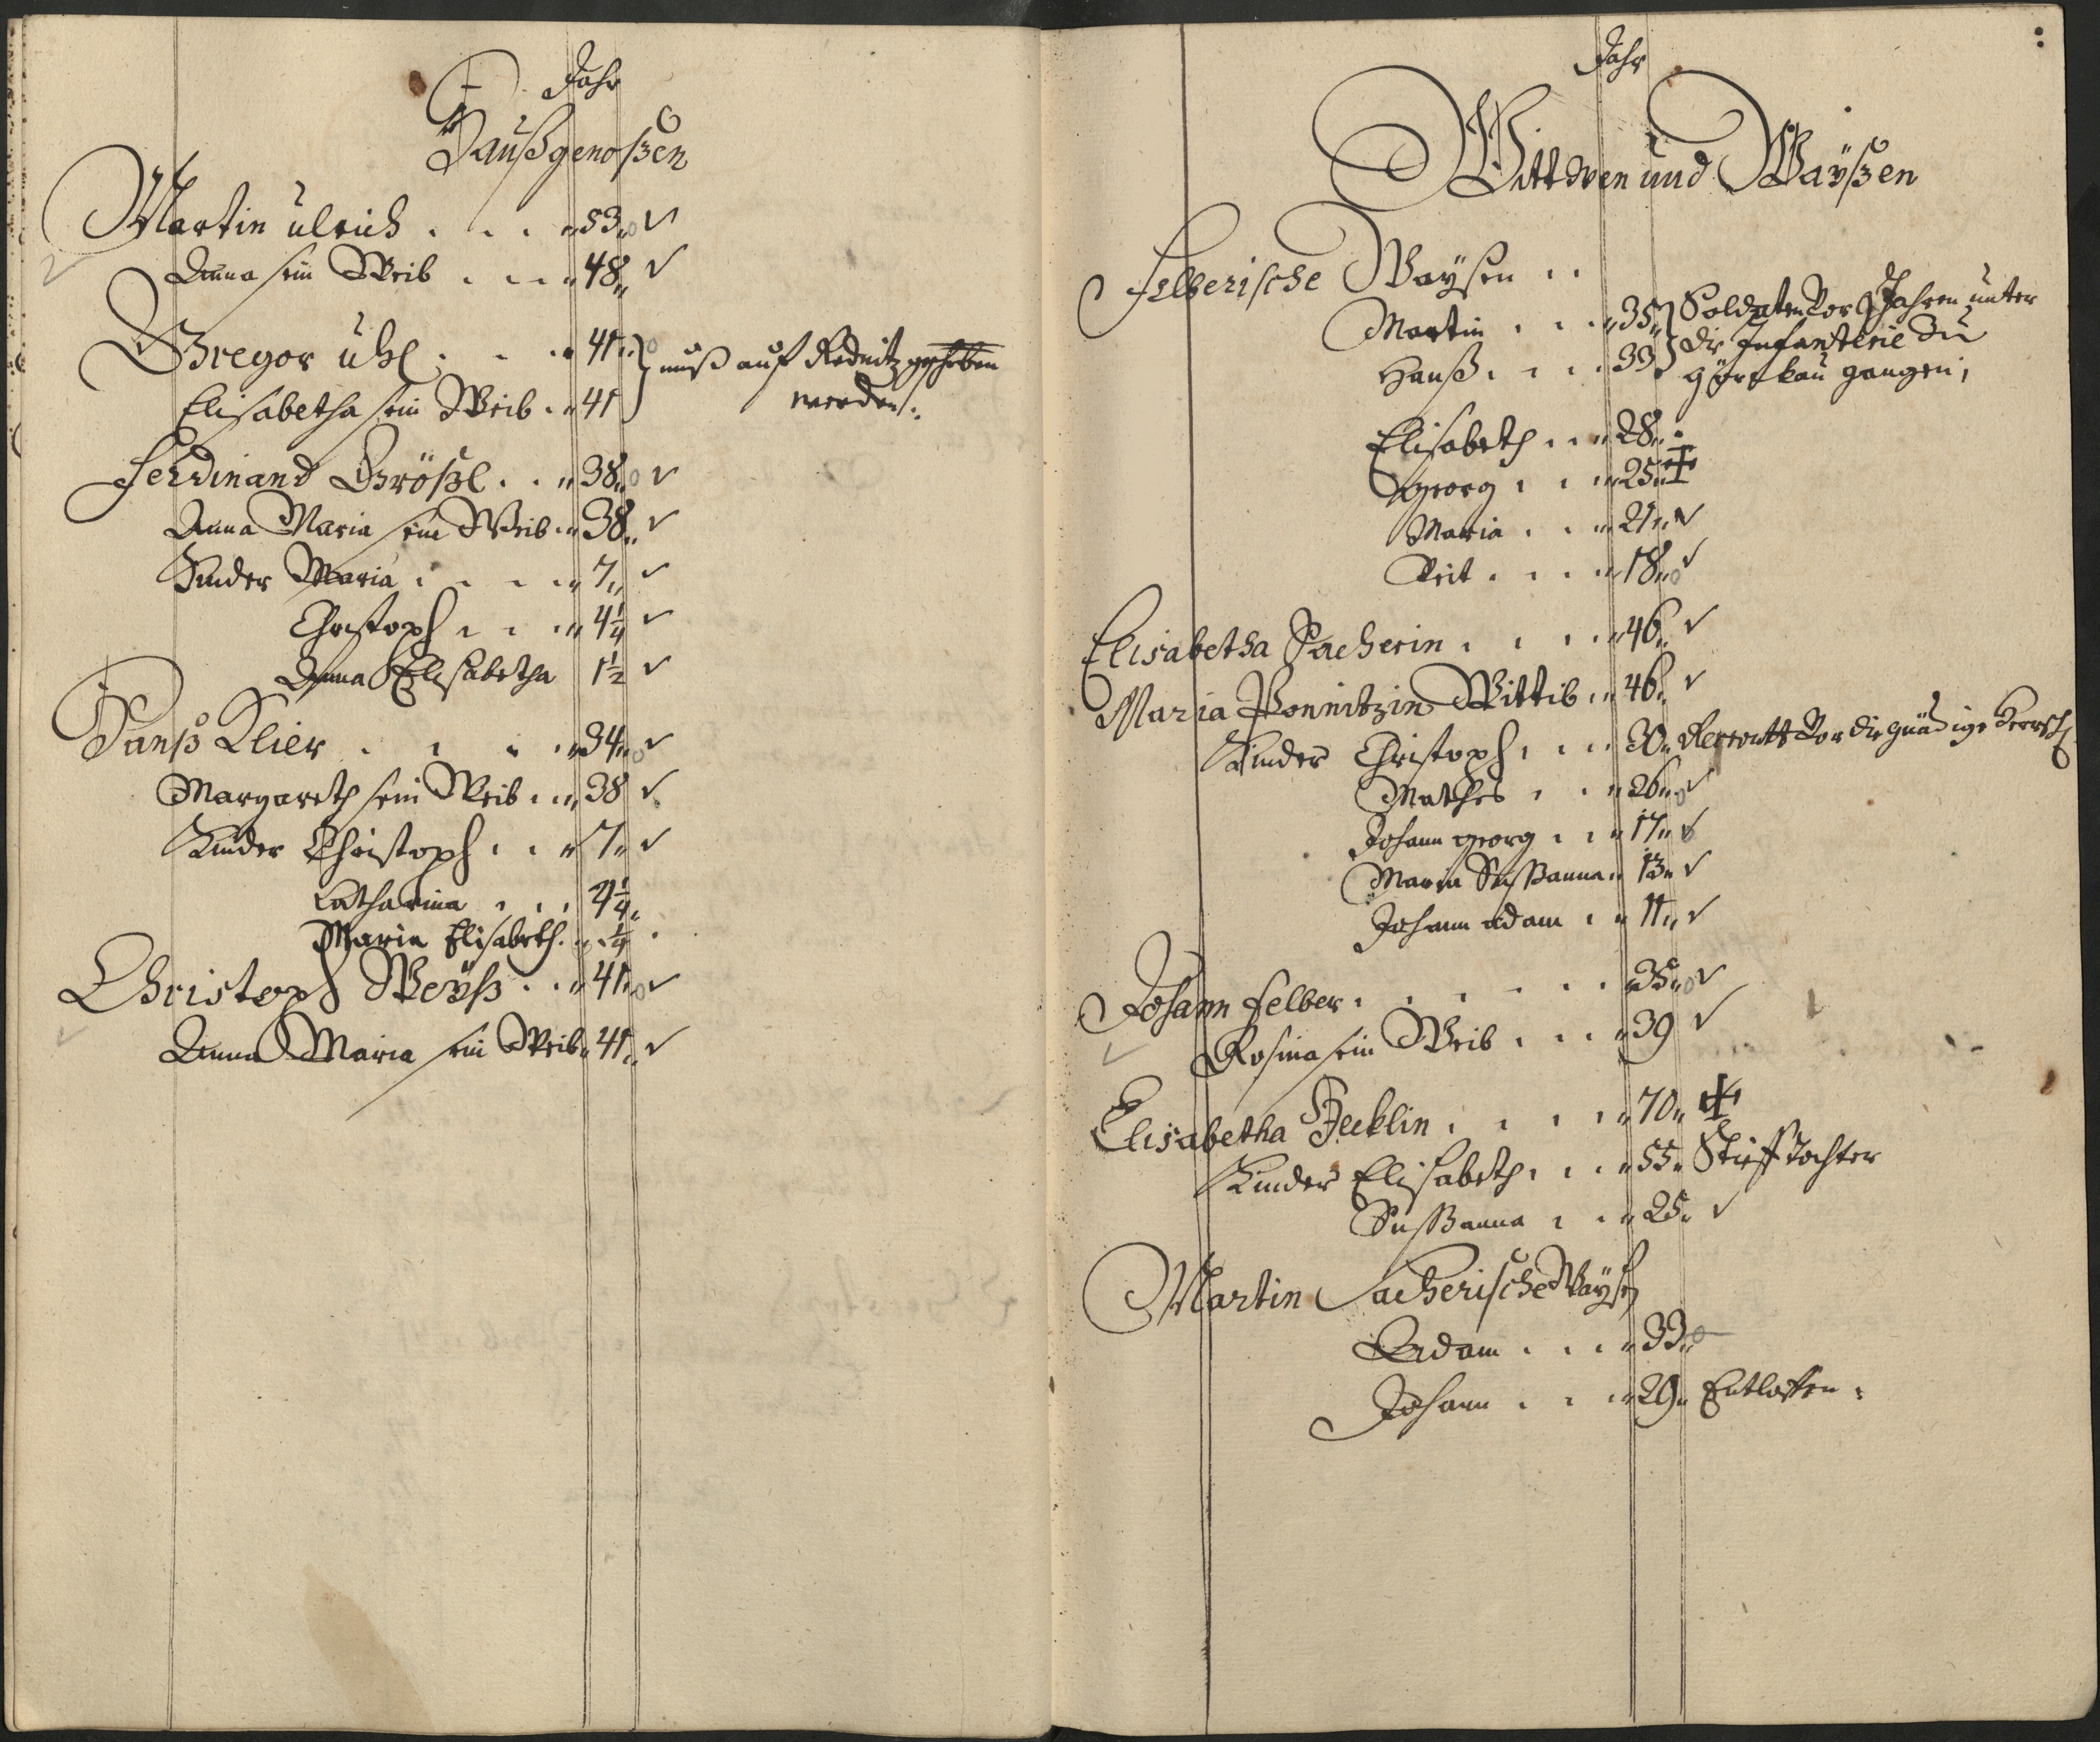 Jahr
Haußgenoßen
Martin Ulrich . . . 53
Anna sein Weib . . . 48
Gregor Uhl . . . 41 } muß auf Rednitz geschrieben
Elisabetha sein Weib . 41 } werden
Ferdinand Größl . . 38
Anna Maria sein Weib . 38
Kinder Maria . . . . 7
Christoph . . . 4 1/4
Anna Elisabetha 1 1/2
Hanß Klier . . . . 34
Margareth sein Weib . . 38
Kinder Christoph . . 7
Catharina . . . 4 1/4
Maria Elisabeth . . 1/4
Christoph Weyß . . 41
Anna Maria sein Weib 41
Jahr
Wittwen und Wayßen
Felberische Waysen . .
Martin . . . 35 } Soldaten vor Jahren unter
Hanß . . . 33 } die Infanterie zu
Görkau gangen
Elisabeth . . . 28
Georg . . . 25 ✝
Maria . . . 21
Veit . . . . 18
Elisabetha Pacherin . . . . 46
Maria Ponnitzin Wittib . 46
Kinder Christoph . . . 30 vor die gnädige Herrsch
Mathes . . . 26
Johann Georg . . . 17
Maria Sußanna . 13
Johann Adam . . 11
Johann Felber . . . . . . 35
Rosina sein Weib . . . 39
Elisabetha Hecklin . . . . 70 ✝
Kinder Elisabeth . . . 55 Stieff Tochter
Sußanna . . . 25
Martin Pacherische Waysen
Adam . . . 33
Johann . . . 29 Entloffen